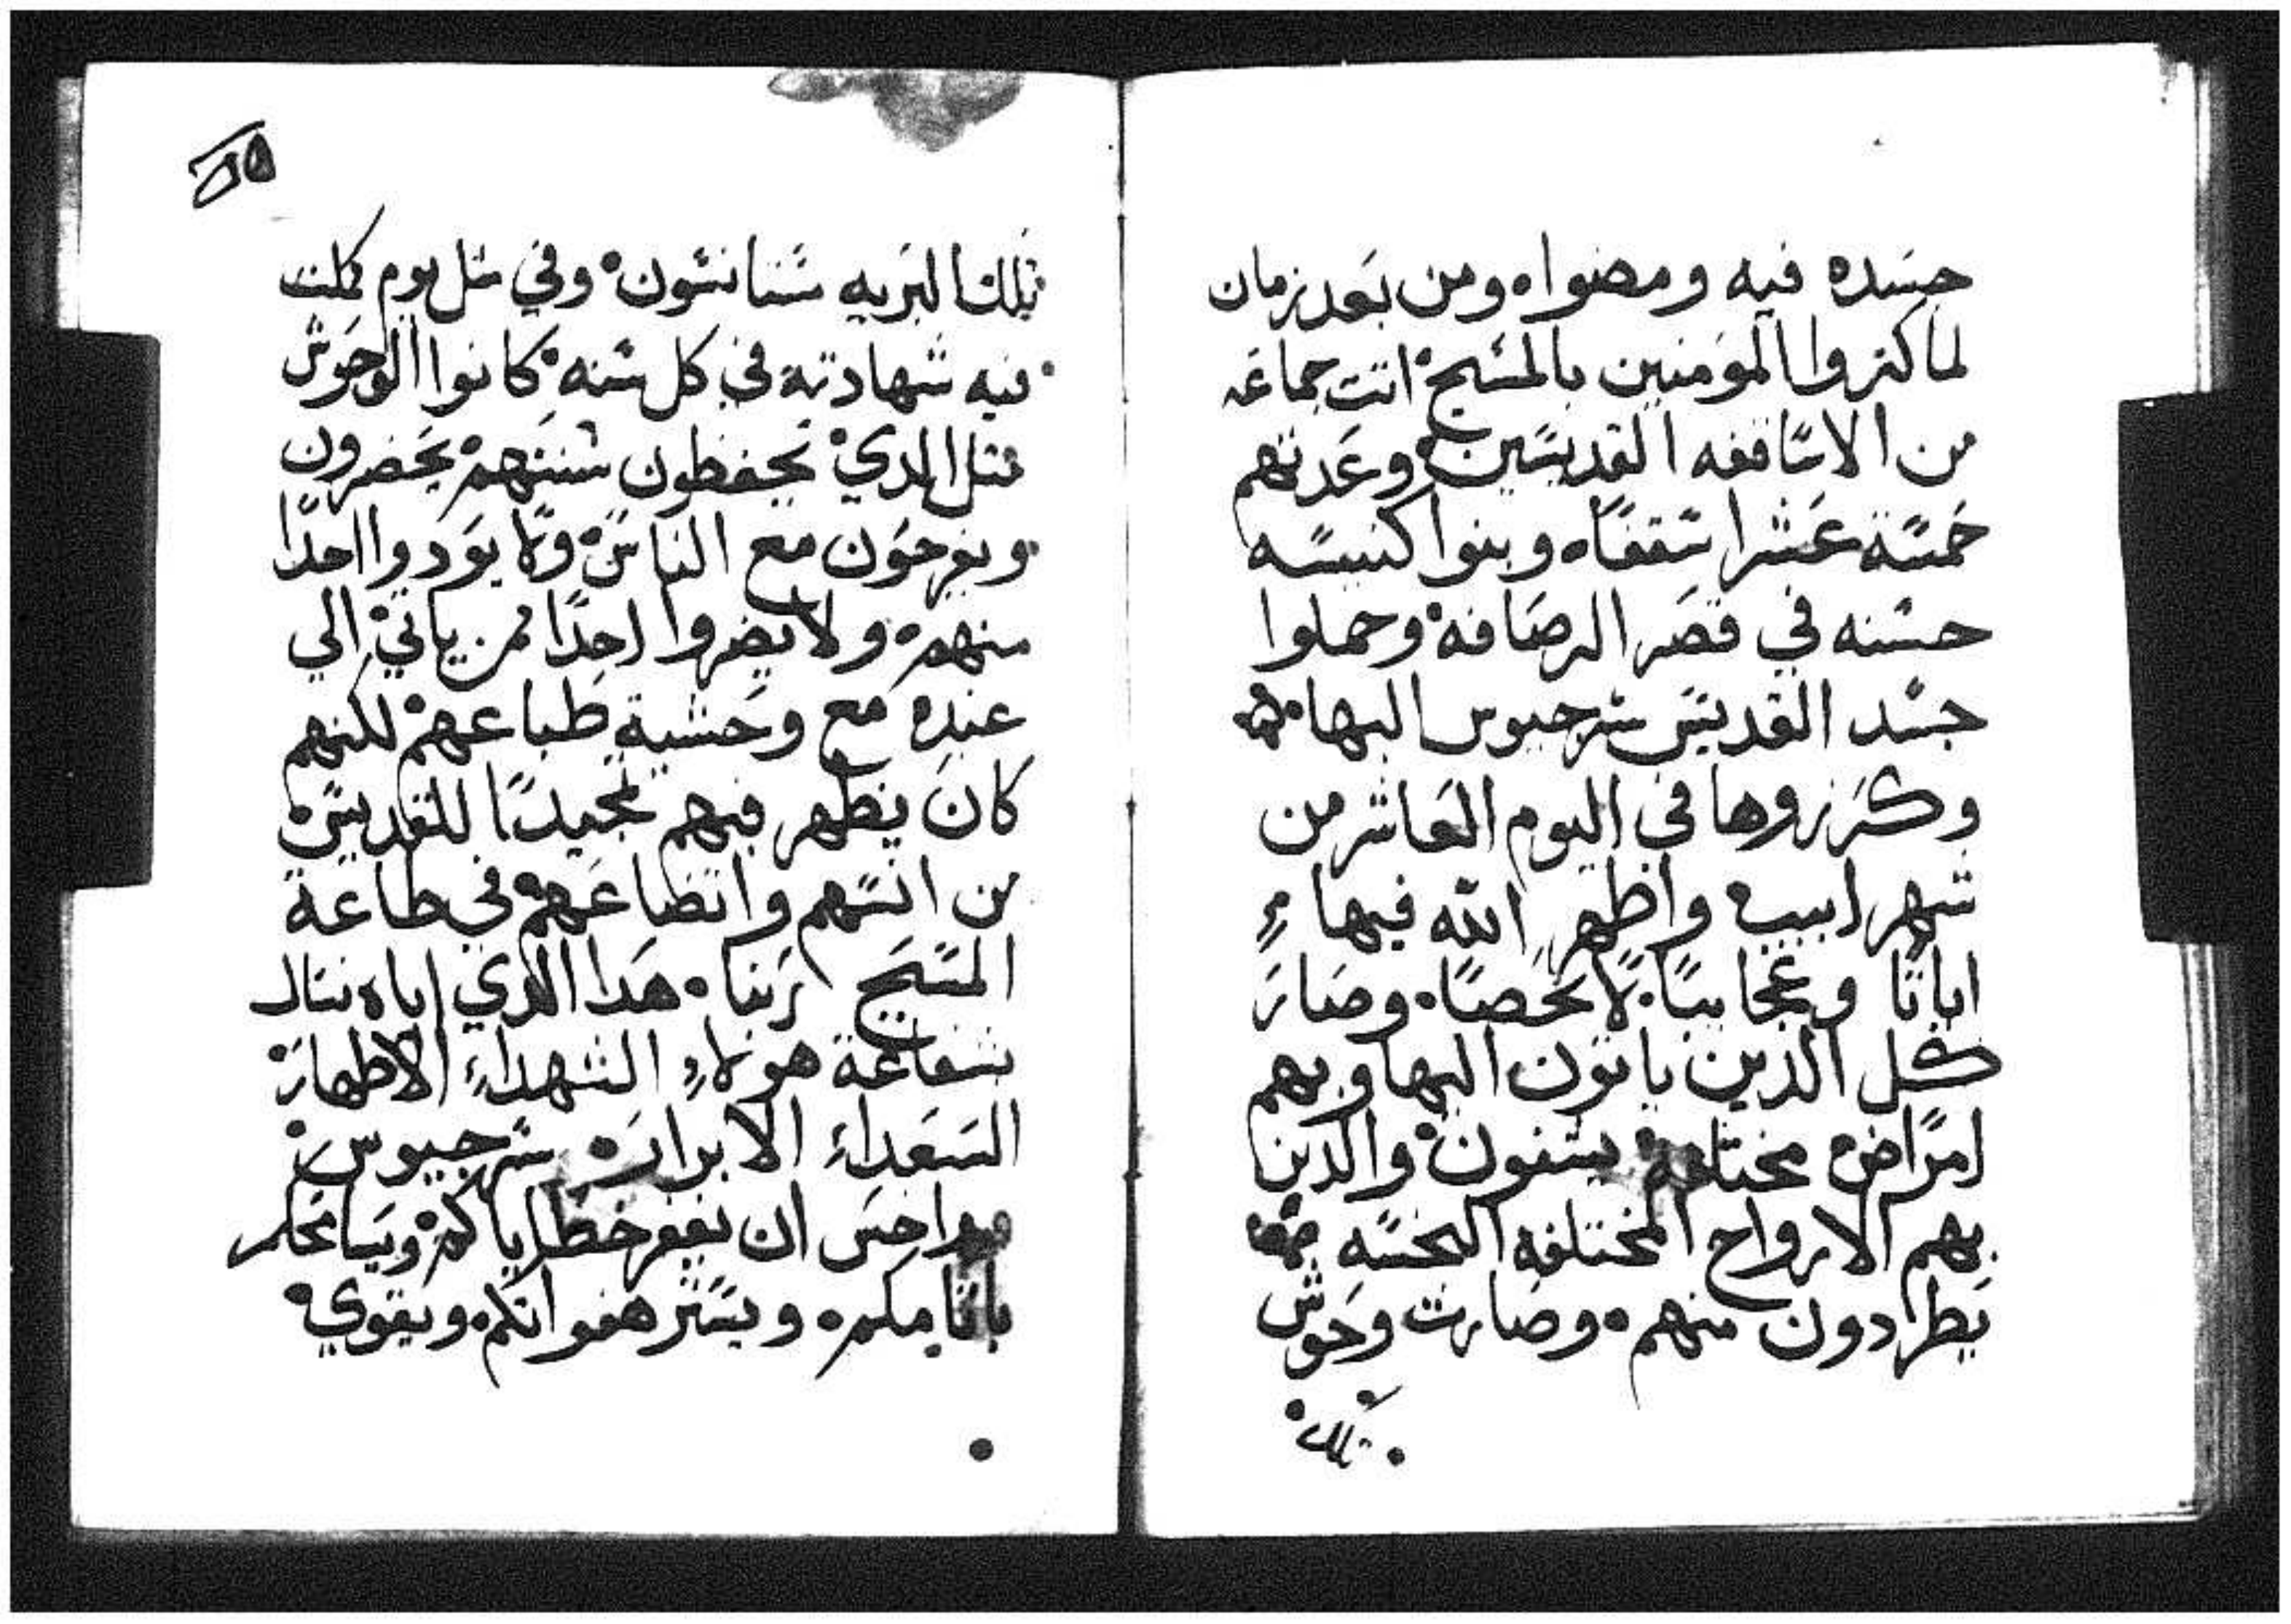 جسده فيه ومضوا ومن بعد زمان
لما كتروا المومنين بالمسيح اتت جماعه
من الاساقفه القديسين وعدتهم
خمسة عشر اسقفا وبنوا كنيسه
حسنه في قصر الرصافه وحملوا
جسد القديس سرجيوس اليها
وكرزوها في اليوم العاشر من
شهر ابيب واظهر الله فيها
اياتا وعجايبا لا تحصا وصار
كل الدين ياتون اليها وبهم
امراض مختلفة يشفون والدين
بهم الارواح المختلفه النجسه
يطردون منهم وصارت وحوش
تلك
تلك البريه ستانسون وفي متل يوم كملت
فيه شهادته في كل سنه كانوا الوحوش
متل الدي تحفظون سننهم يحضرون
ويفرحون مع الناس ولا يودوا احدا
منهم ولا يضروا احدا ممن ياتي الي
عنده مع وحشية طباعهم لكنهم
كان يظهر فيهم تمجيدا للقديس
من انسهم واتضاعهم في طاعة
المسيح ربنا هدا الدي اياه نسال
بشفاعة هولاء الشهداء الاطهار
السعداء الابرار سرجيوس
وواخس ان يغفر خطاياكم ويسامحكم
باتامكم ويستر هفواتكم ويقوي